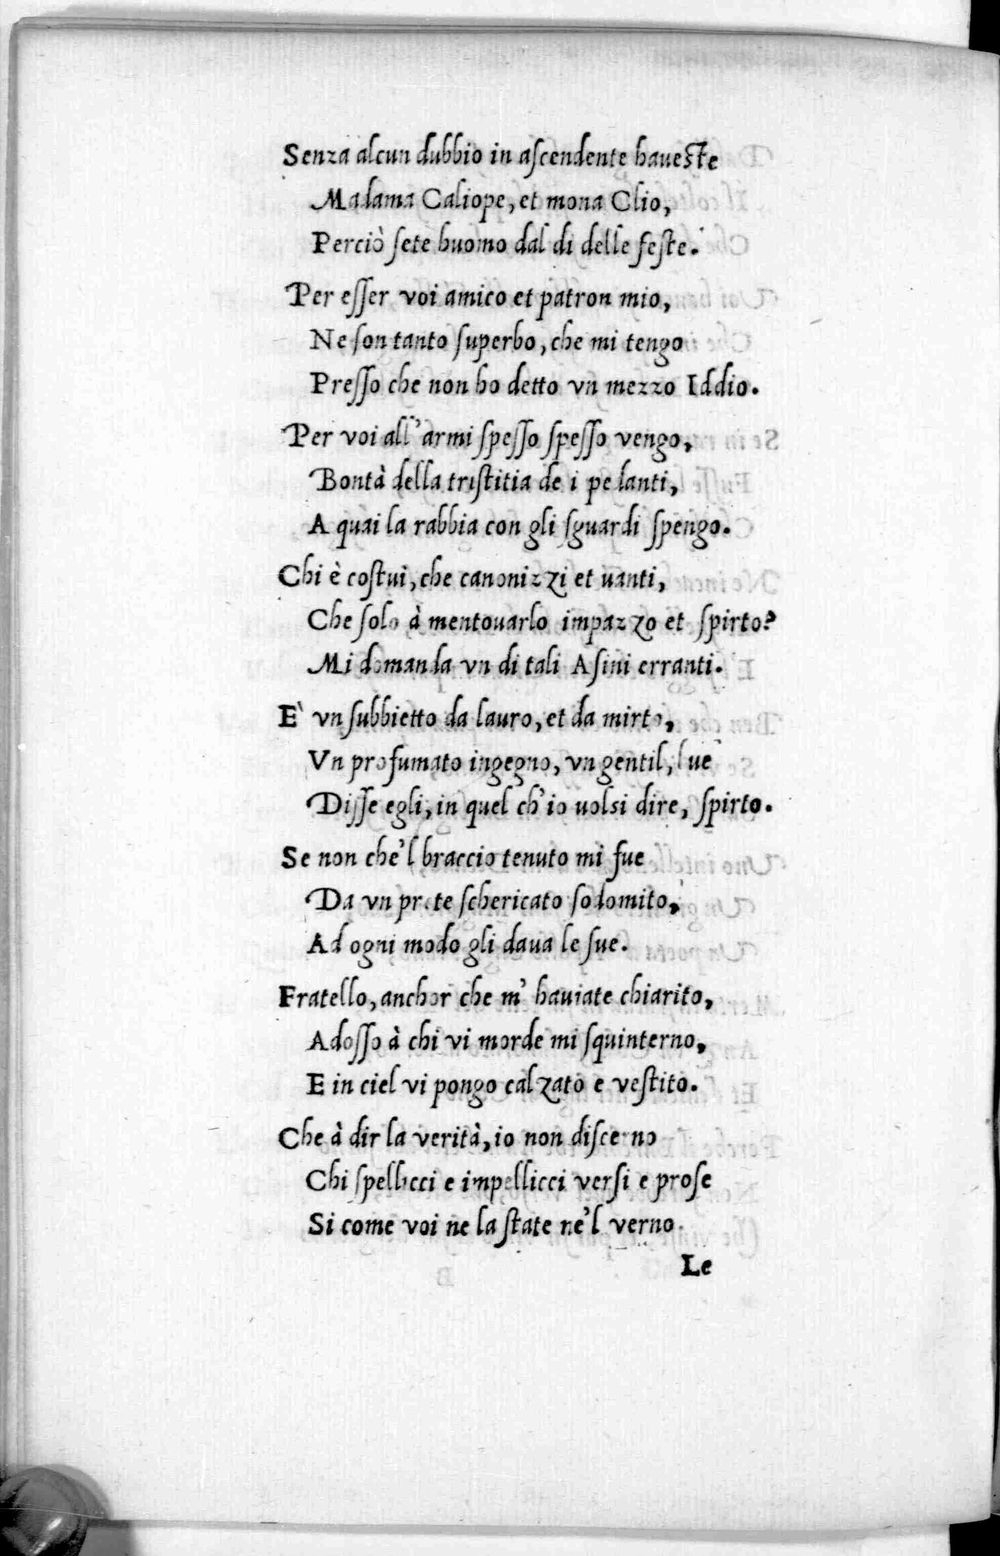 Senza alcun dubbio in ascendente haueste
Madama Caliope, et mona Clio,
Perciò sete huomo dal di delle feste.
Per esser voi amico et patron mio,
Ne son tanto superbo, che mi tengo
Presso che non ho detto vn mezzo Iddio.
Per voi all'armi spesso spesso vengo,
Bontà della tristitia de i pedanti,
A quai la rabbia con gli sguardi spengo.
Chi è costui, che canonizzi et uanti,
Che solo à mentouarlo impazzo et spirto?
Mi domanda vn di tali Asini erranti.
E' vn subbietto da lauro, et da mirto,
Vn profumato ingegno, vn gentil, lue
Disse egli, in quel ch'io uolsi dire, spirto.
Se non che'l braccio tenuto mi fue
Da vn prete schericato sodomito,
Ad ogni modo gli daua le sue.
Fratello, anchor che m' hauiate chiarito,
Adosso à chi vi morde mi squinterno,
E in ciel vi pongo calzato e vestito.
Che à dir la verità, io non discerno
Chi spellicci e impellicci versi e prose
Si come voi ne la state ne'l verno.
Le